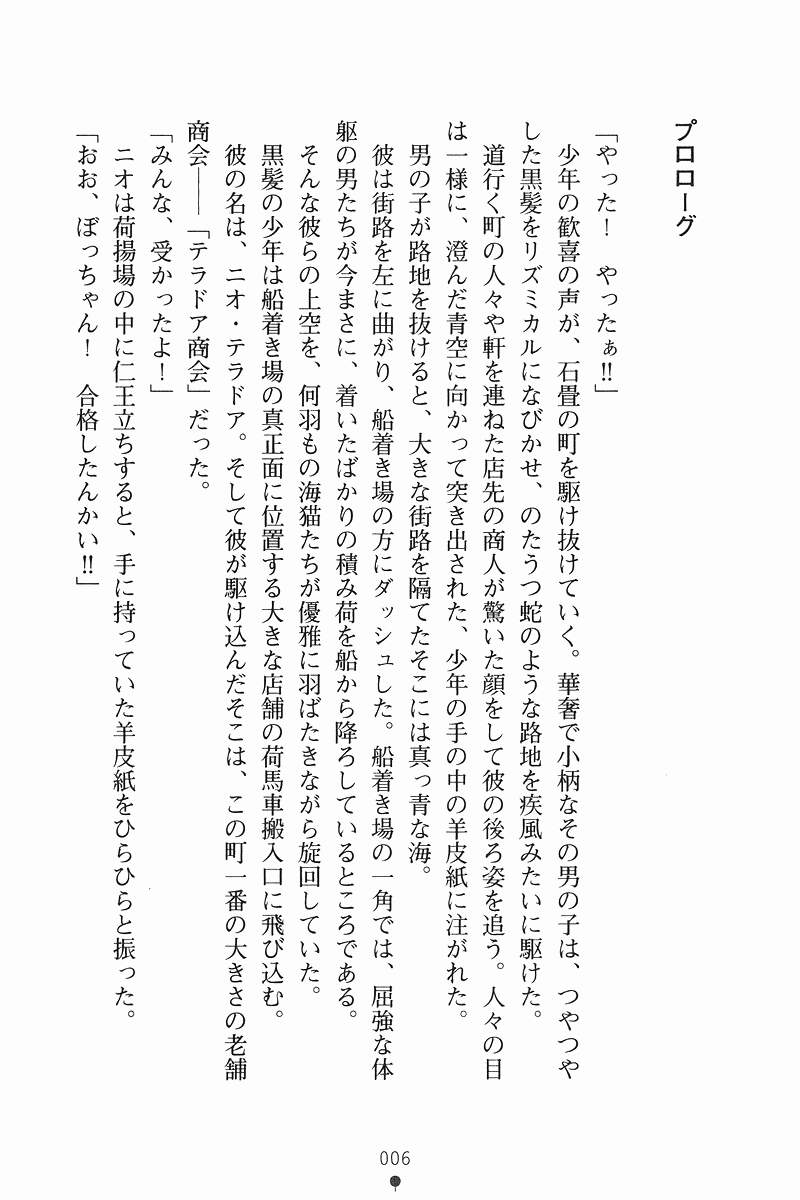 プロローグ
「やった！　やったぁ!!」
　少年の歓喜の声が、石畳の町を駆け抜けていく。華奢で小柄なその男の子は、つやつや
した黒髪をリズミカルになびかせ、のたうつ蛇のような路地を疾風みたいに駆けた。
　道行く町の人々や軒を連ねた店先の商人が驚いた顔をして彼の後ろ姿を追う。人々の目
は一様に、澄んだ青空に向かって突き出された、少年の手の中の羊皮紙に注がれた。
　男の子が路地を抜けると、大きな街路を隔てたそこには真っ青な海。
　彼は街路を左に曲がり、船着き場の方にダッシュした。船着き場の一角では、屈強な体
躯の男たちが今まさに、着いたばかりの積み荷を船から降ろしているところである。
　そんな彼らの上空を、何羽もの海猫たちが優雅に羽ばたきながら旋回していた。
　黒髪の少年は船着き場の真正面に位置する大きな店舗の荷馬車搬入口に飛び込む。
　彼の名は、ニオ・テラドア。そして彼が駆け込んだそこは、この町一番の大きさの老舗
商会――「テラドア商会」だった。
「みんな、受かったよ！」
　ニオは荷揚場の中に仁王立ちすると、手に持っていた羊皮紙をひらひらと振った。
「おお、ぼっちゃん！　合格したんかい!!」
006